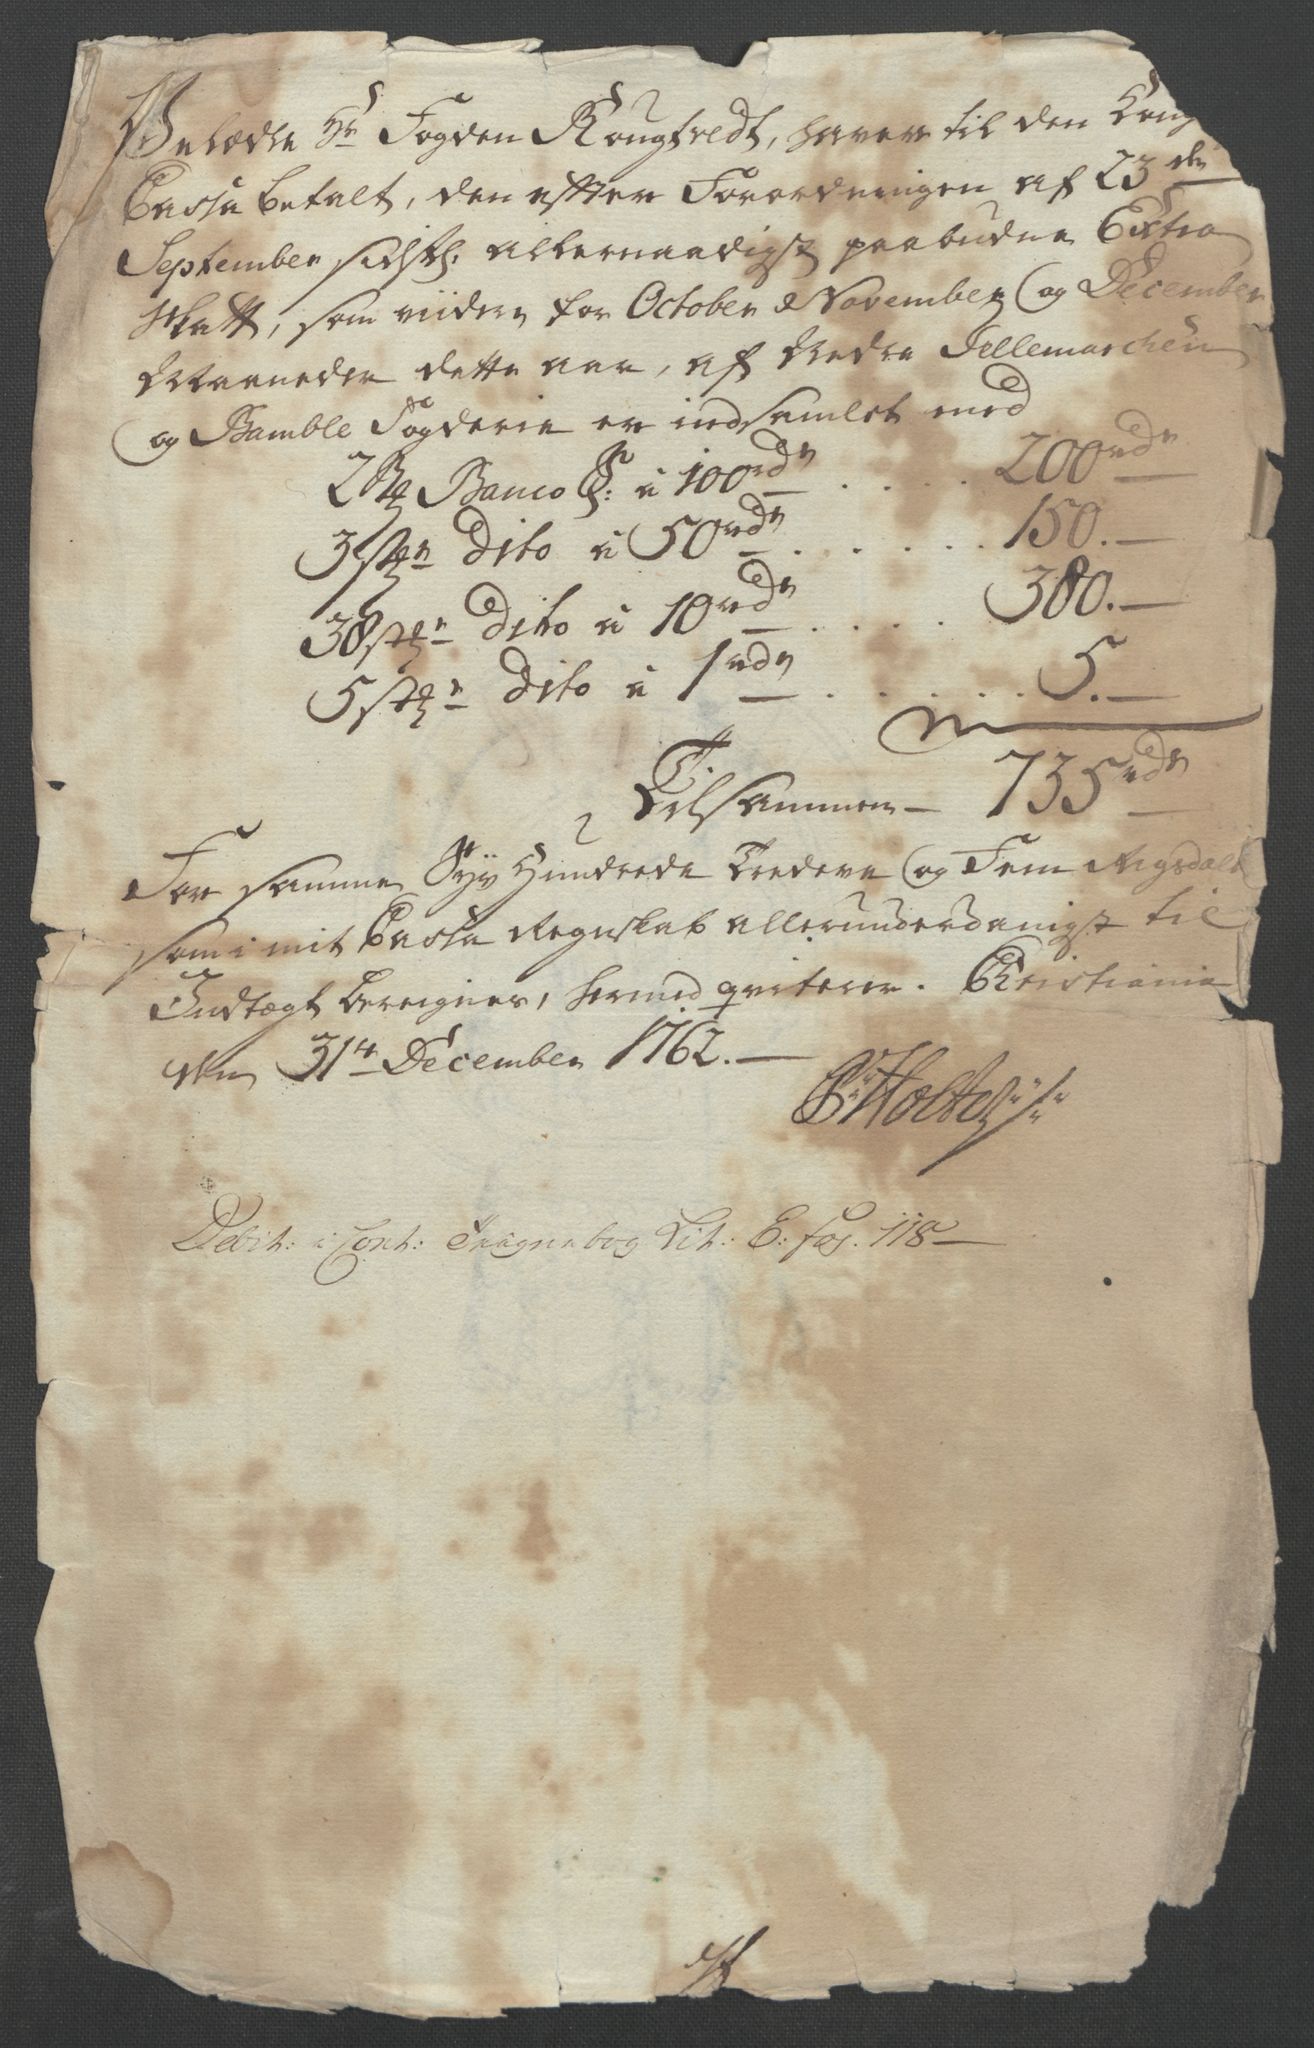 Velædle Hr Fogden Rougtvedt, haver til den Kong
Cassa betalt, den efter Forordningen af 23de
September sidstl. allernaadigst paabudne Extra
Skatt, som viidere for October November og December
Maaneder dette aar, af Nedre Tellemarchen
og Bamble Fogderie er indsamlet med
2 Stk Banco S: a 100rdr . . . . 200rdr
3 stkr Dito a 50rdr . . . . . . 150.
38 stkr Dito a 10rdr . . . . . 380.
5 stkr Dito a 1rdr . . . . . . 5.
Tilsammen 735rdr
For samme Syv Hundrede Tredeve og Fem Rigsdaler
som i mit Cassa Regnskab allerunderdanigst til
Indtægt beregnes, hermed qviterer. Christiania
den 31te December 1762.
P Holte
Debit: i Cont: Bog Lit: E: fol. 118